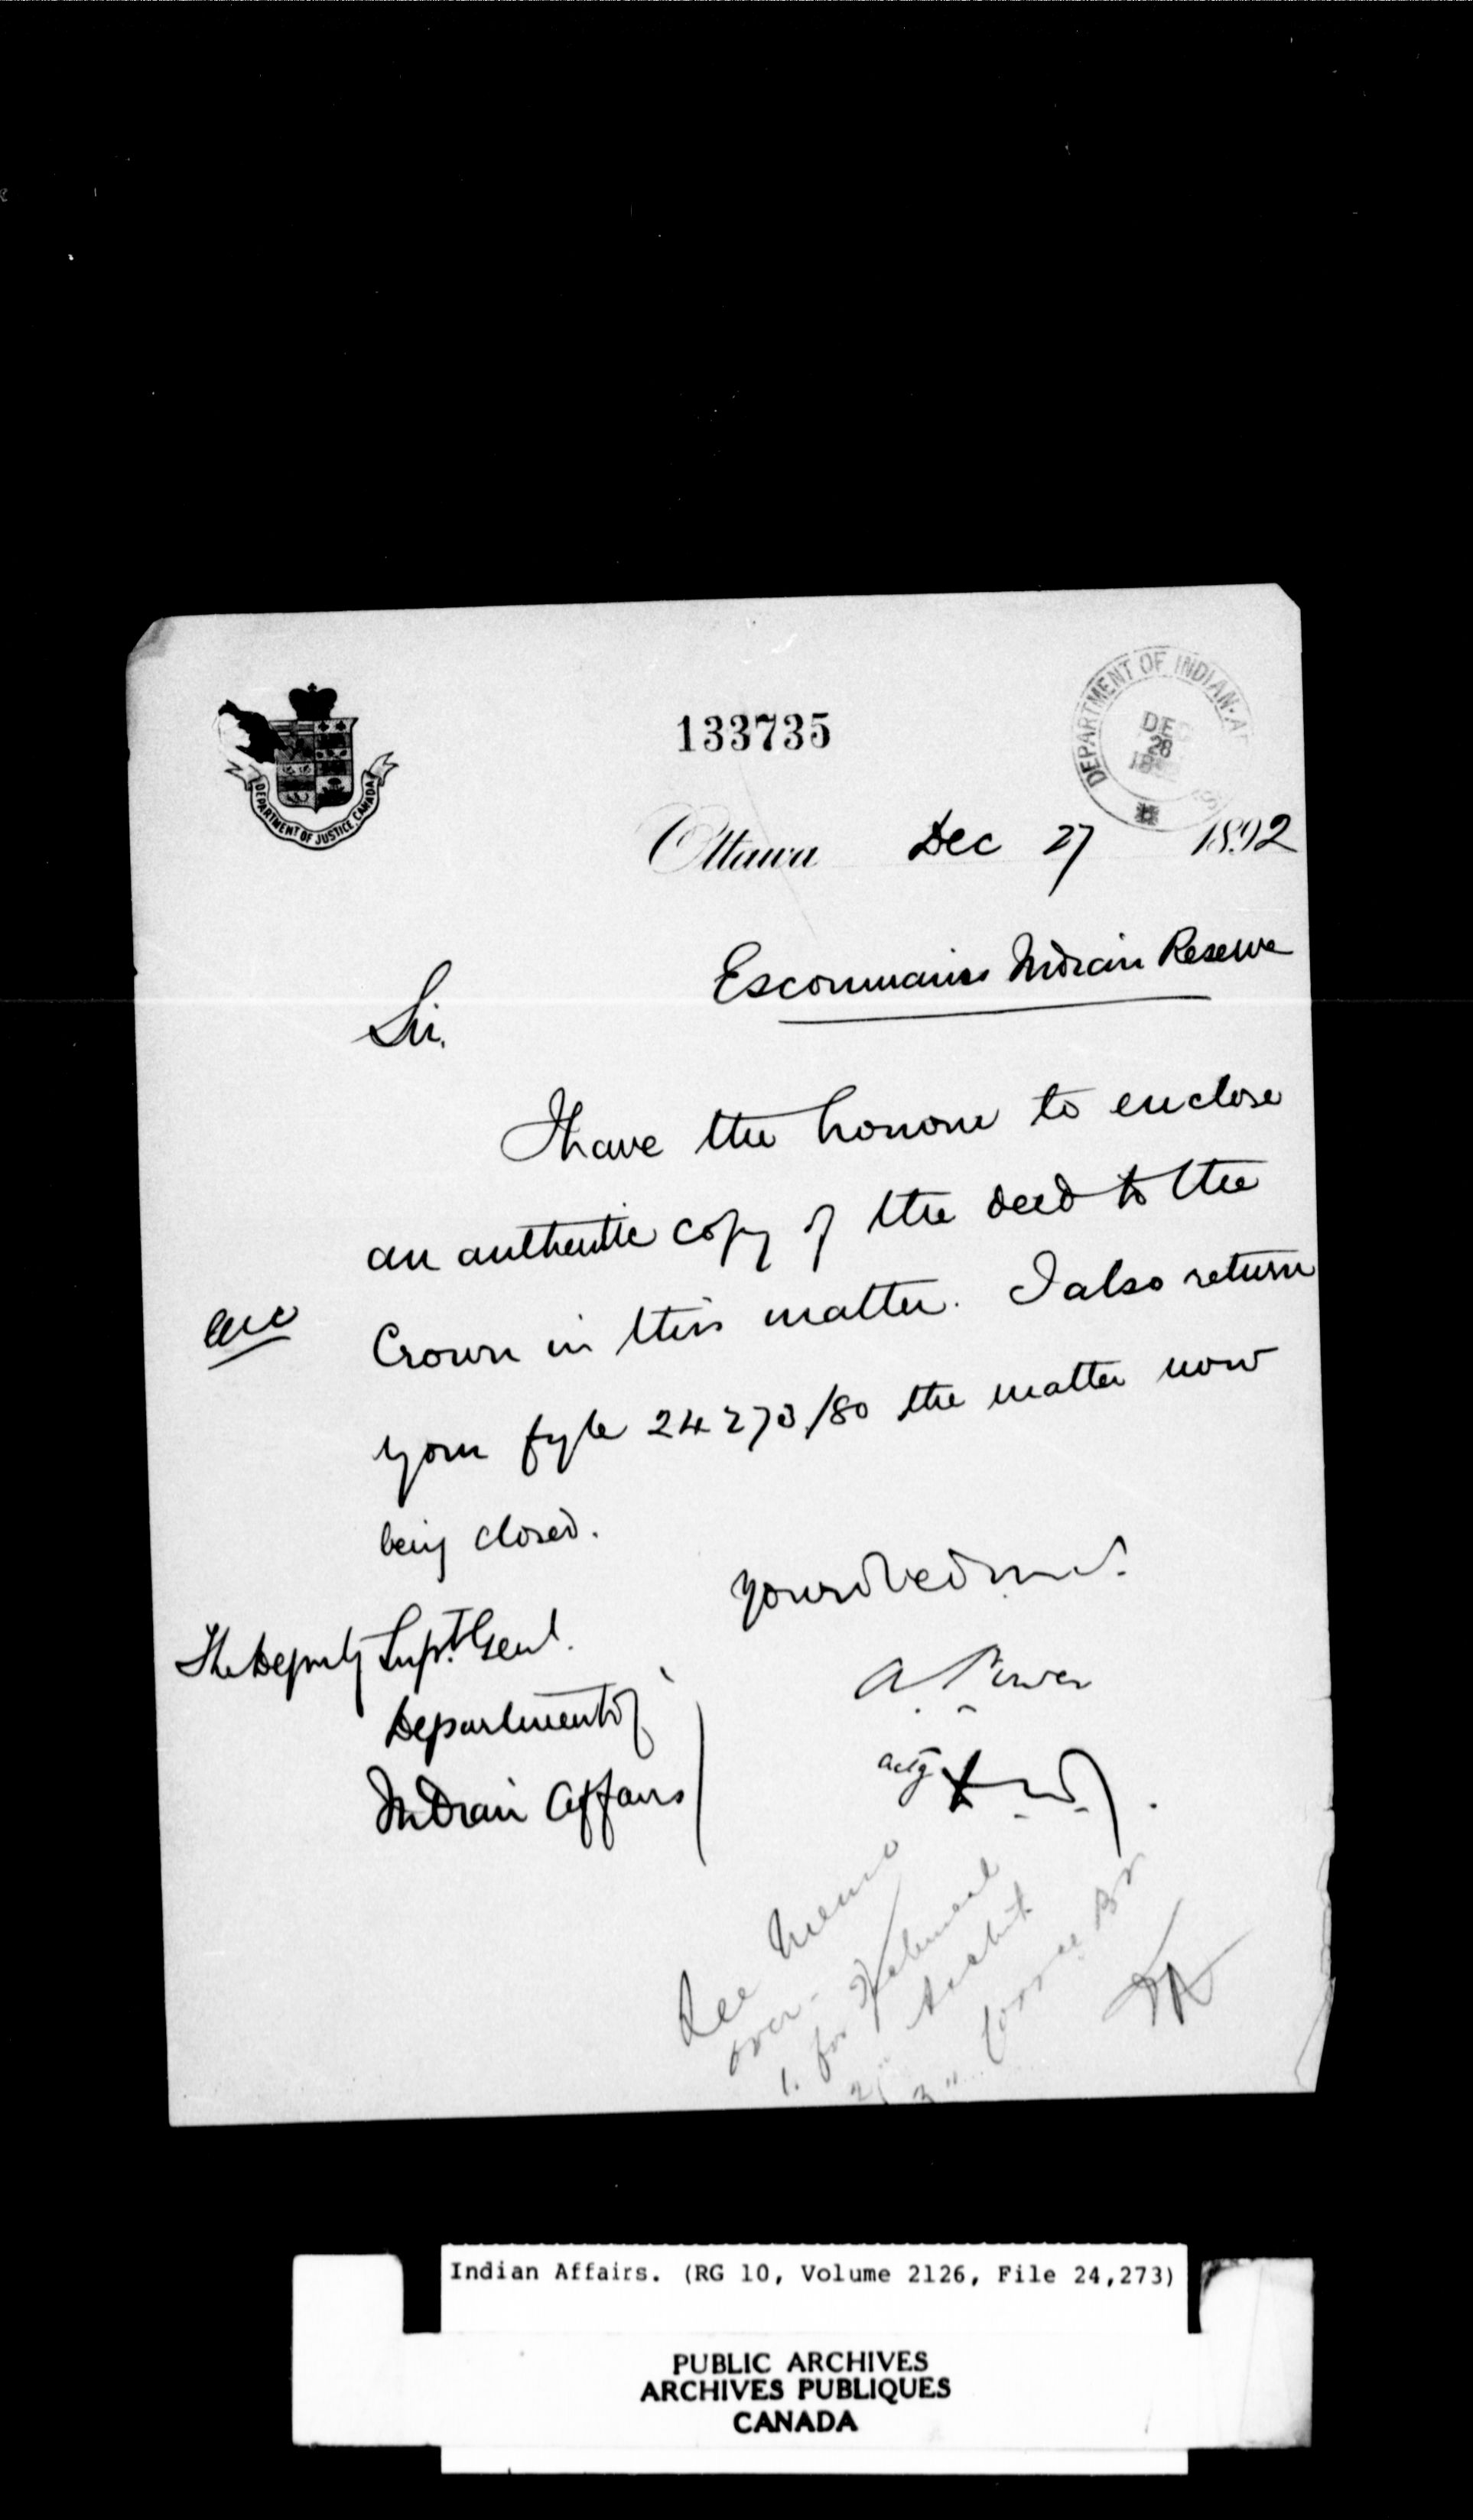 133735
DEPARTMENT OF INDIAN AF
DEC
28
DEPARTMENT OF JUSTICE, CANADA
Ottawa Dec 27 1892
Escoumains Indian Reserve
Sir.
I have the honour to enclose
an authentic copy of the deed to the
Crown in this matter. I also return
your fyle 24273/80 the matter now
being closed.
The Deputy Supt. Genl.
Department of
Indian Affairs
A Power
actg
See memo
over.
1. for
2 "
3 "
Indian Affairs. (RG 10, Volume 2126, File 24,273)
PUBLIC ARCHIVES
ARCHIVES PUBLIQUES
CANADA